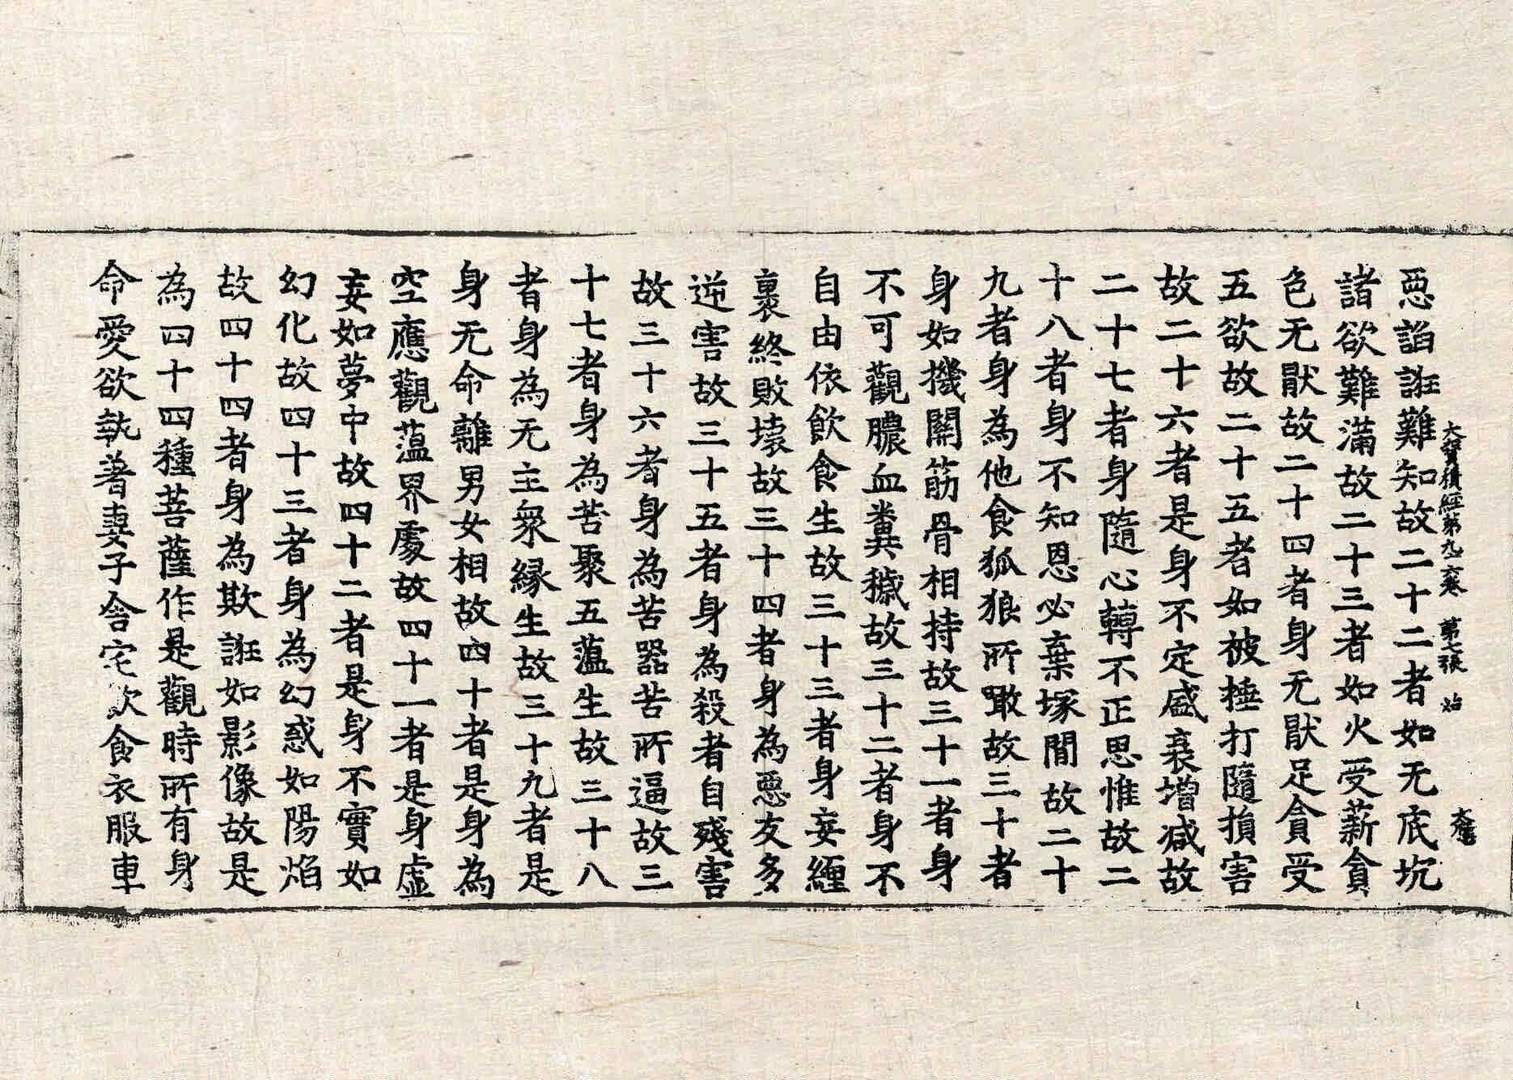 大寶積經第九六卷 第七張 始
惡諂誑難知故二十二者如无底坑
諸欲難滿故二十三者如火受薪貪
色无猒故二十四者身无猒足貪受
五欲故二十五者如被捶打隨損害
故二十六者是身不定盛衰增減故
二十七者身隨心轉不正思惟故二
十八者身不知恩必棄塚閒故二十
九者身為他食狐狼所噉故三十者
身如機關筋骨相持故三十一者身
不可觀膿血糞穢故三十二者身不
自由依飮食生故三十三者身妄纏
裹終敗壞故三十四者身為惡友多
逆害故三十五者身為殺者自殘害
故三十六者身為苦器苦所逼故三
十七者身為苦聚五蘊生故三十八
者身為无主衆緣生故三十九者是
身无命離男女相故四十者是身為
空應觀蘊界處故四十一者是身虛
妄如夢中故四十二者是身不實如
幻化故四十三者身為幻惑如陽焰
故四十四者身為欺誑如影像故是
為四十四種菩薩作是觀時所有身
命愛欲執著妻子舍宅飮食衣服車